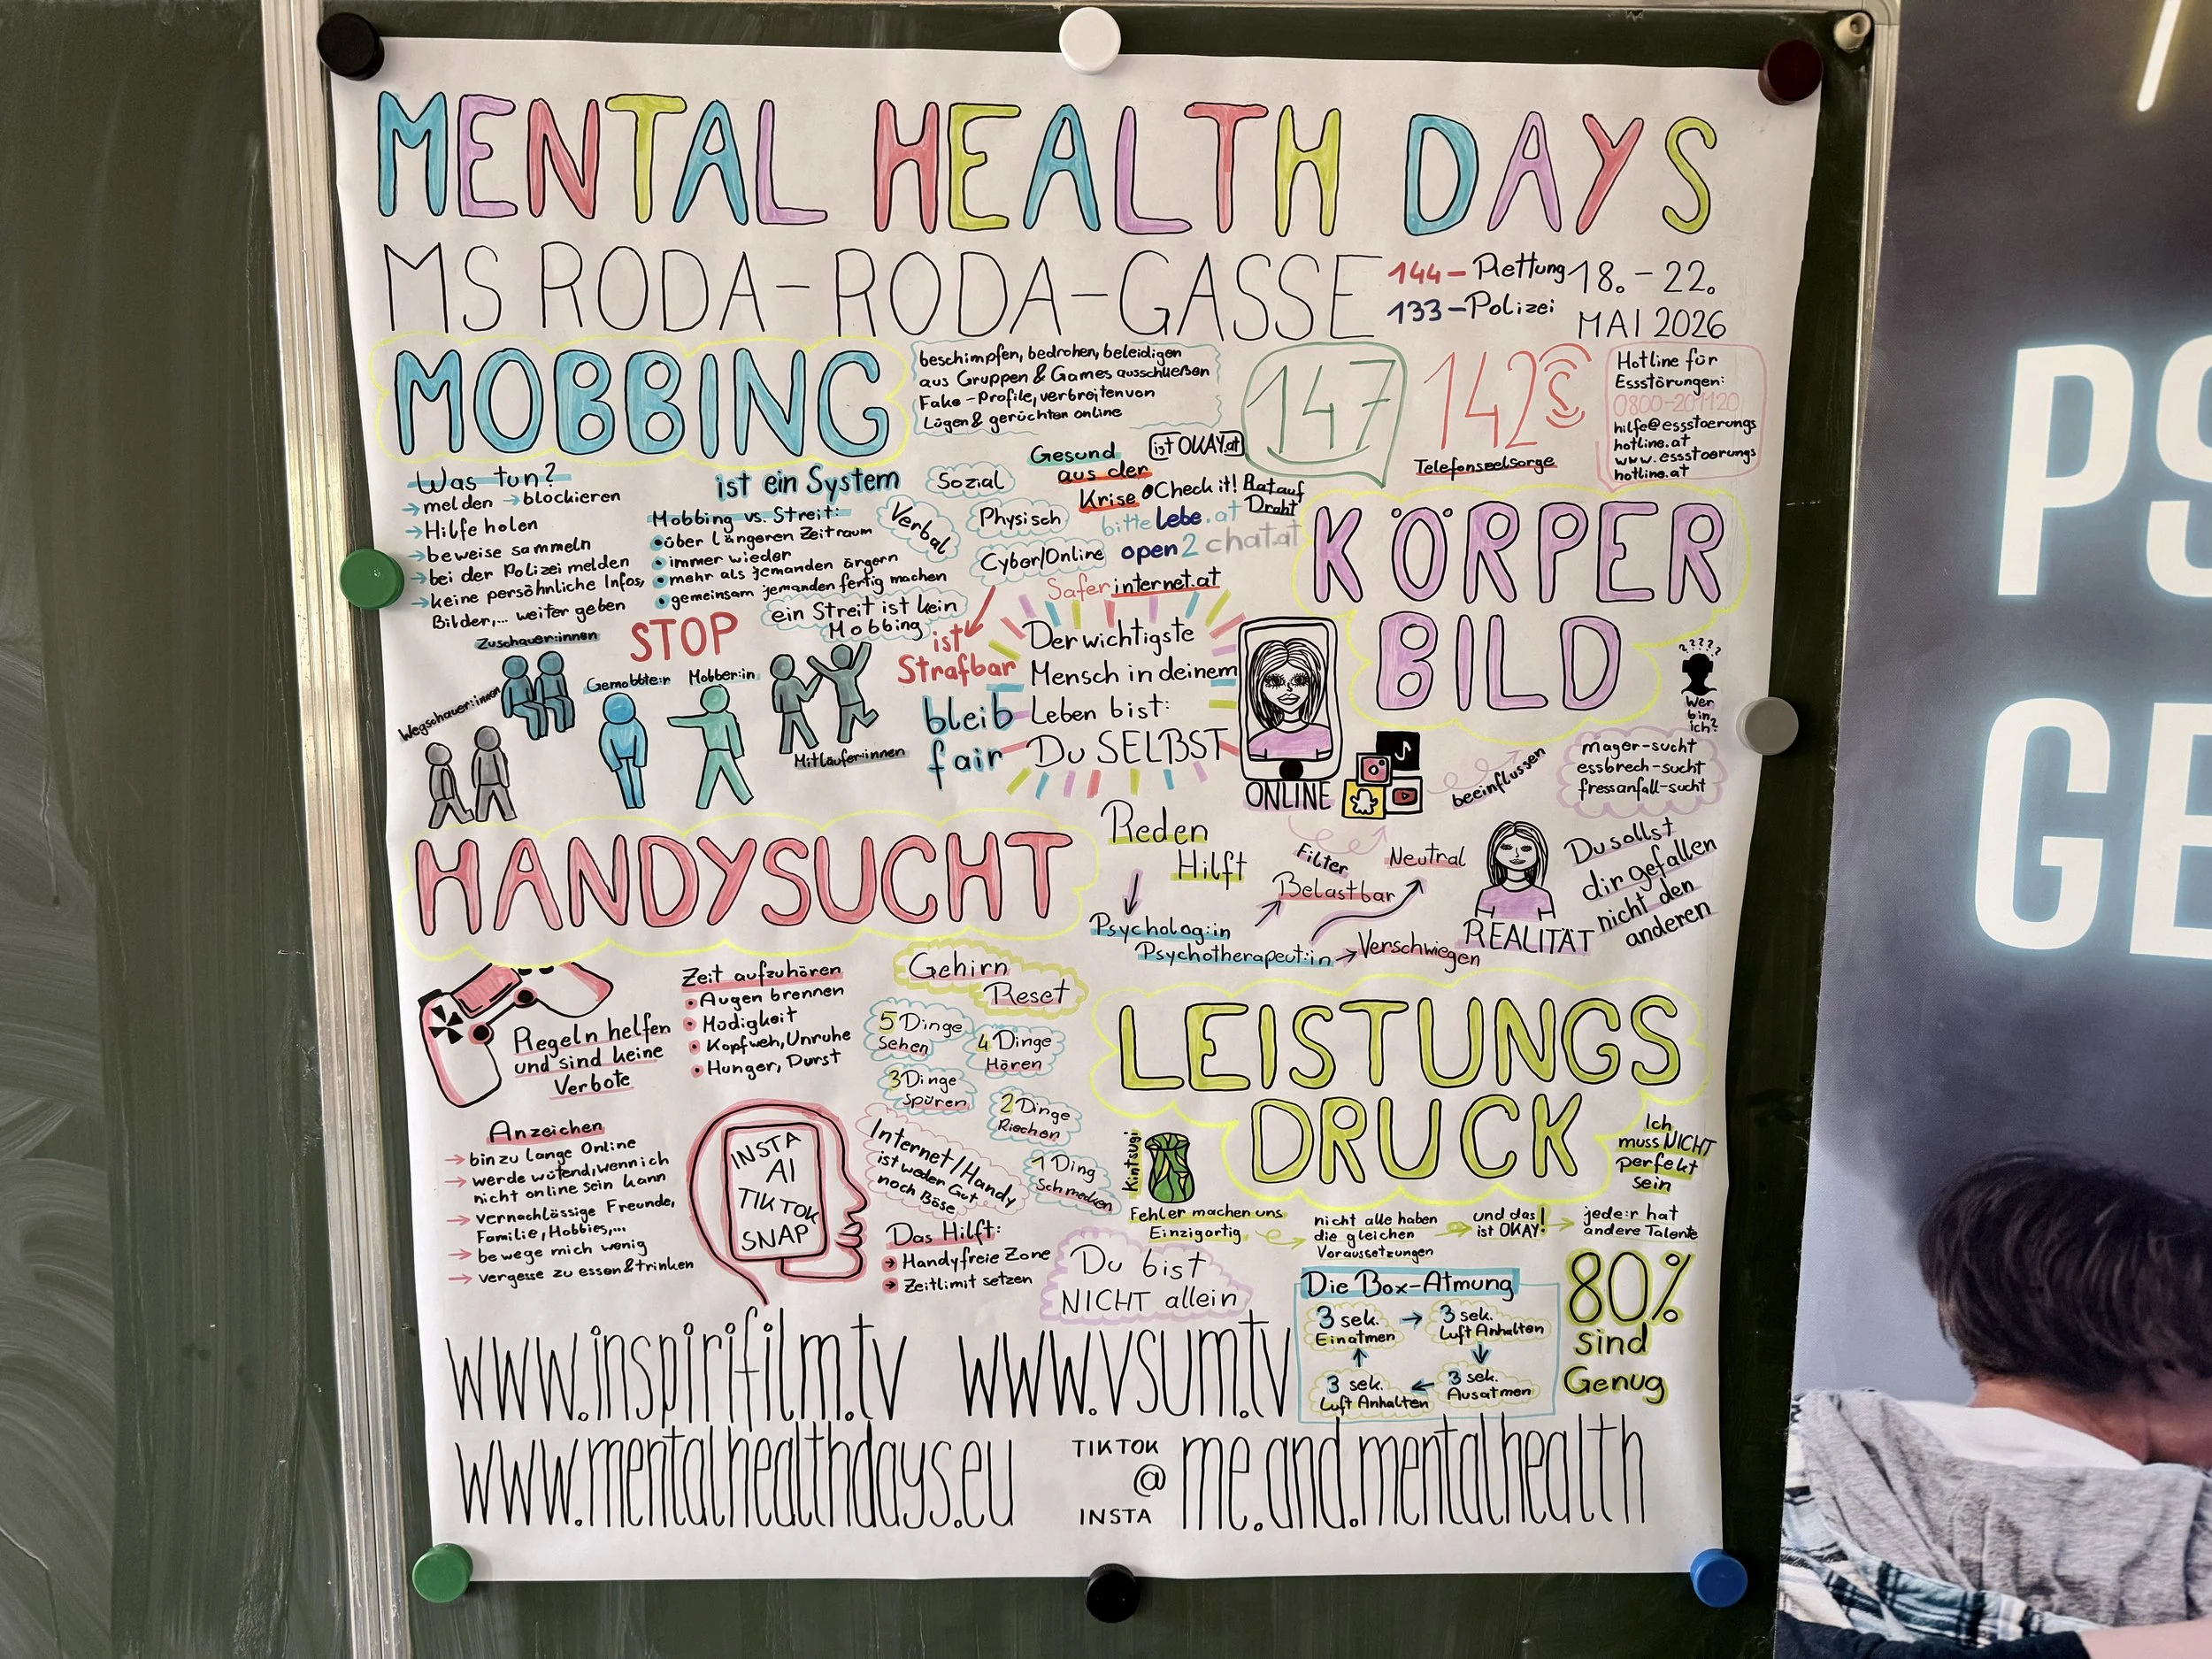 MENTAL HEALTH DAYS
MS RODA-RODA-GASSE
144 - Rettung
133 - Polizei
18. - 22.
MAI 2026
MOBBING
beschimpfen, bedrohen, beleidigen
aus Gruppen & Games ausschließen
Fake-Profile, verbreiten von
Lügen & gerüchten online
147
142
Telefonseelsorge
Hotline für
Essstörungen:
0800-201120
hilfe@essstoerungs
hotline.at
www.essstoerungs
hotline.at
Was tun?
→ melden → blockieren
→ Hilfe holen
→ beweise sammeln
→ bei der Polizei melden
→ keine persöhnliche Infos,
Bilder,... weiter geben
ist ein System
Mobbing vs. Streit:
• über längeren Zeitraum
• immer wieder
• mehr als jemanden ärgern
• gemeinsam jemanden fertig machen
ein Streit ist kein
Mobbing
Sozial
Verbal
Physisch
Cyber/Online
ist
Strafbar
Gesund
aus der
Krise
ist OKAY.at
Check it!
Rat auf
Draht
bitte lebe.at
open2chat.at
Saferinternet.at
STOP
Zuschauer:innen
Wegschauer:innen
Gemobbte:r
Mobber:in
Mitläufer:innen
bleib
fair
Der wichtigste
Mensch in deinem
Leben bist:
Du SELBST
KÖRPER
BILD
????
Wer
bin
ich?
ONLINE
beeinflussen
mager-sucht
essbrech-sucht
fressanfall-sucht
Reden
Hilft
Psycholog:in
Psychotherapeut:in
Filter
Belastbar
Neutral
→ Verschwiegen
REALITÄT
Du sollst
dir gefallen
nicht den
anderen
HANDYSUCHT
Regeln helfen
und sind keine
Verbote
Zeit aufzuhören
• Augen brennen
• Müdigkeit
• Kopfweh, Unruhe
• Hunger, Durst
Gehirn
Reset
5 Dinge
Sehen
4 Dinge
Hören
3 Dinge
Spüren
2 Dinge
Riechen
1 Ding
Schmecken
Anzeichen
→ bin zu lange Online
→ werde wütend, wenn ich
nicht online sein kann
→ vernachlässige Freunde,
Familie, Hobbies,...
→ bewege mich wenig
→ vergesse zu essen & trinken
INSTA
AI
TIKTOK
SNAP
Internet/Handy
ist weder Gut
noch Böse
Das Hilft:
→ Handyfreie Zone
→ Zeitlimit setzen
LEISTUNGS
DRUCK
Kintsugi
Ich
muss NICHT
perfekt
sein
Fehler machen uns
Einzigartig
nicht alle haben
die gleichen
Voraussetzungen
und das
ist OKAY!
jede:r hat
andere Talente
Du bist
NICHT allein
Die Box-Atmung
3 sek.
Einatmen
3 sek.
Luft Anhalten
3 sek.
Luft Anhalten
3 sek.
Ausatmen
80%
sind
Genug
www.inspirifilm.tv
www.vsum.tv
www.mentalhealthdays.eu
TIKTOK
@
INSTA
me.and.mentalhealth
PS
GE